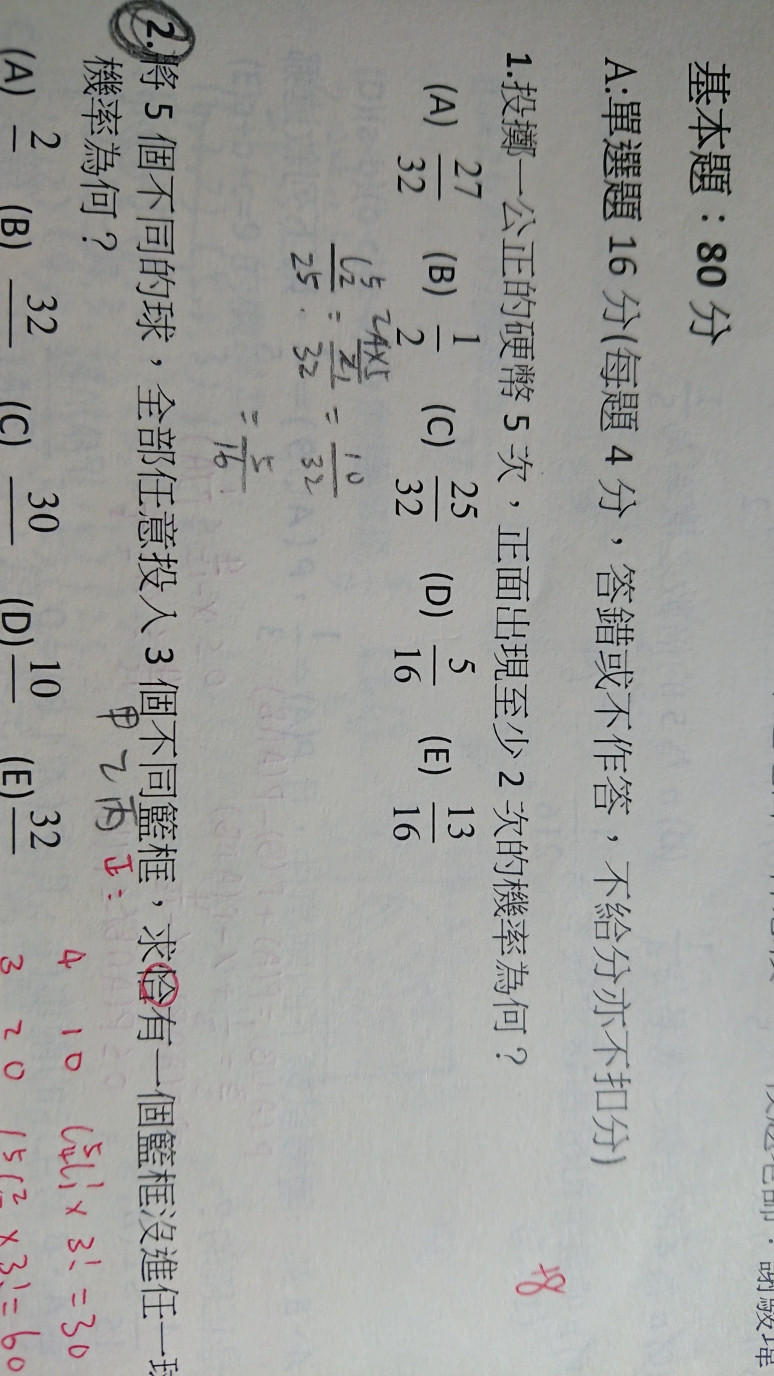 基本題：80分
A:單選題 16 分(每題 4 分，答錯或不作答，不給分亦不扣分)
+8
1.投擲一公正的硬幣 5 次，正面出現至少 2 次的機率為何？
(A) 27/32 (B) 1/2 (C) 25/32 (D) 5/16 (E) 13/16
= 10/32
= 5/16
2.將 5 個不同的球，全部任意投入 3 個不同籃框，求恰有一個籃框沒進任一球
機率為何？
甲 乙 丙
正：
4 1 0 C⁵₄C¹₁ × 3! = 30
(A) 2 (B) 32 (C) 30 (D) 10 (E) 32
3 2 0 × 3! = 60